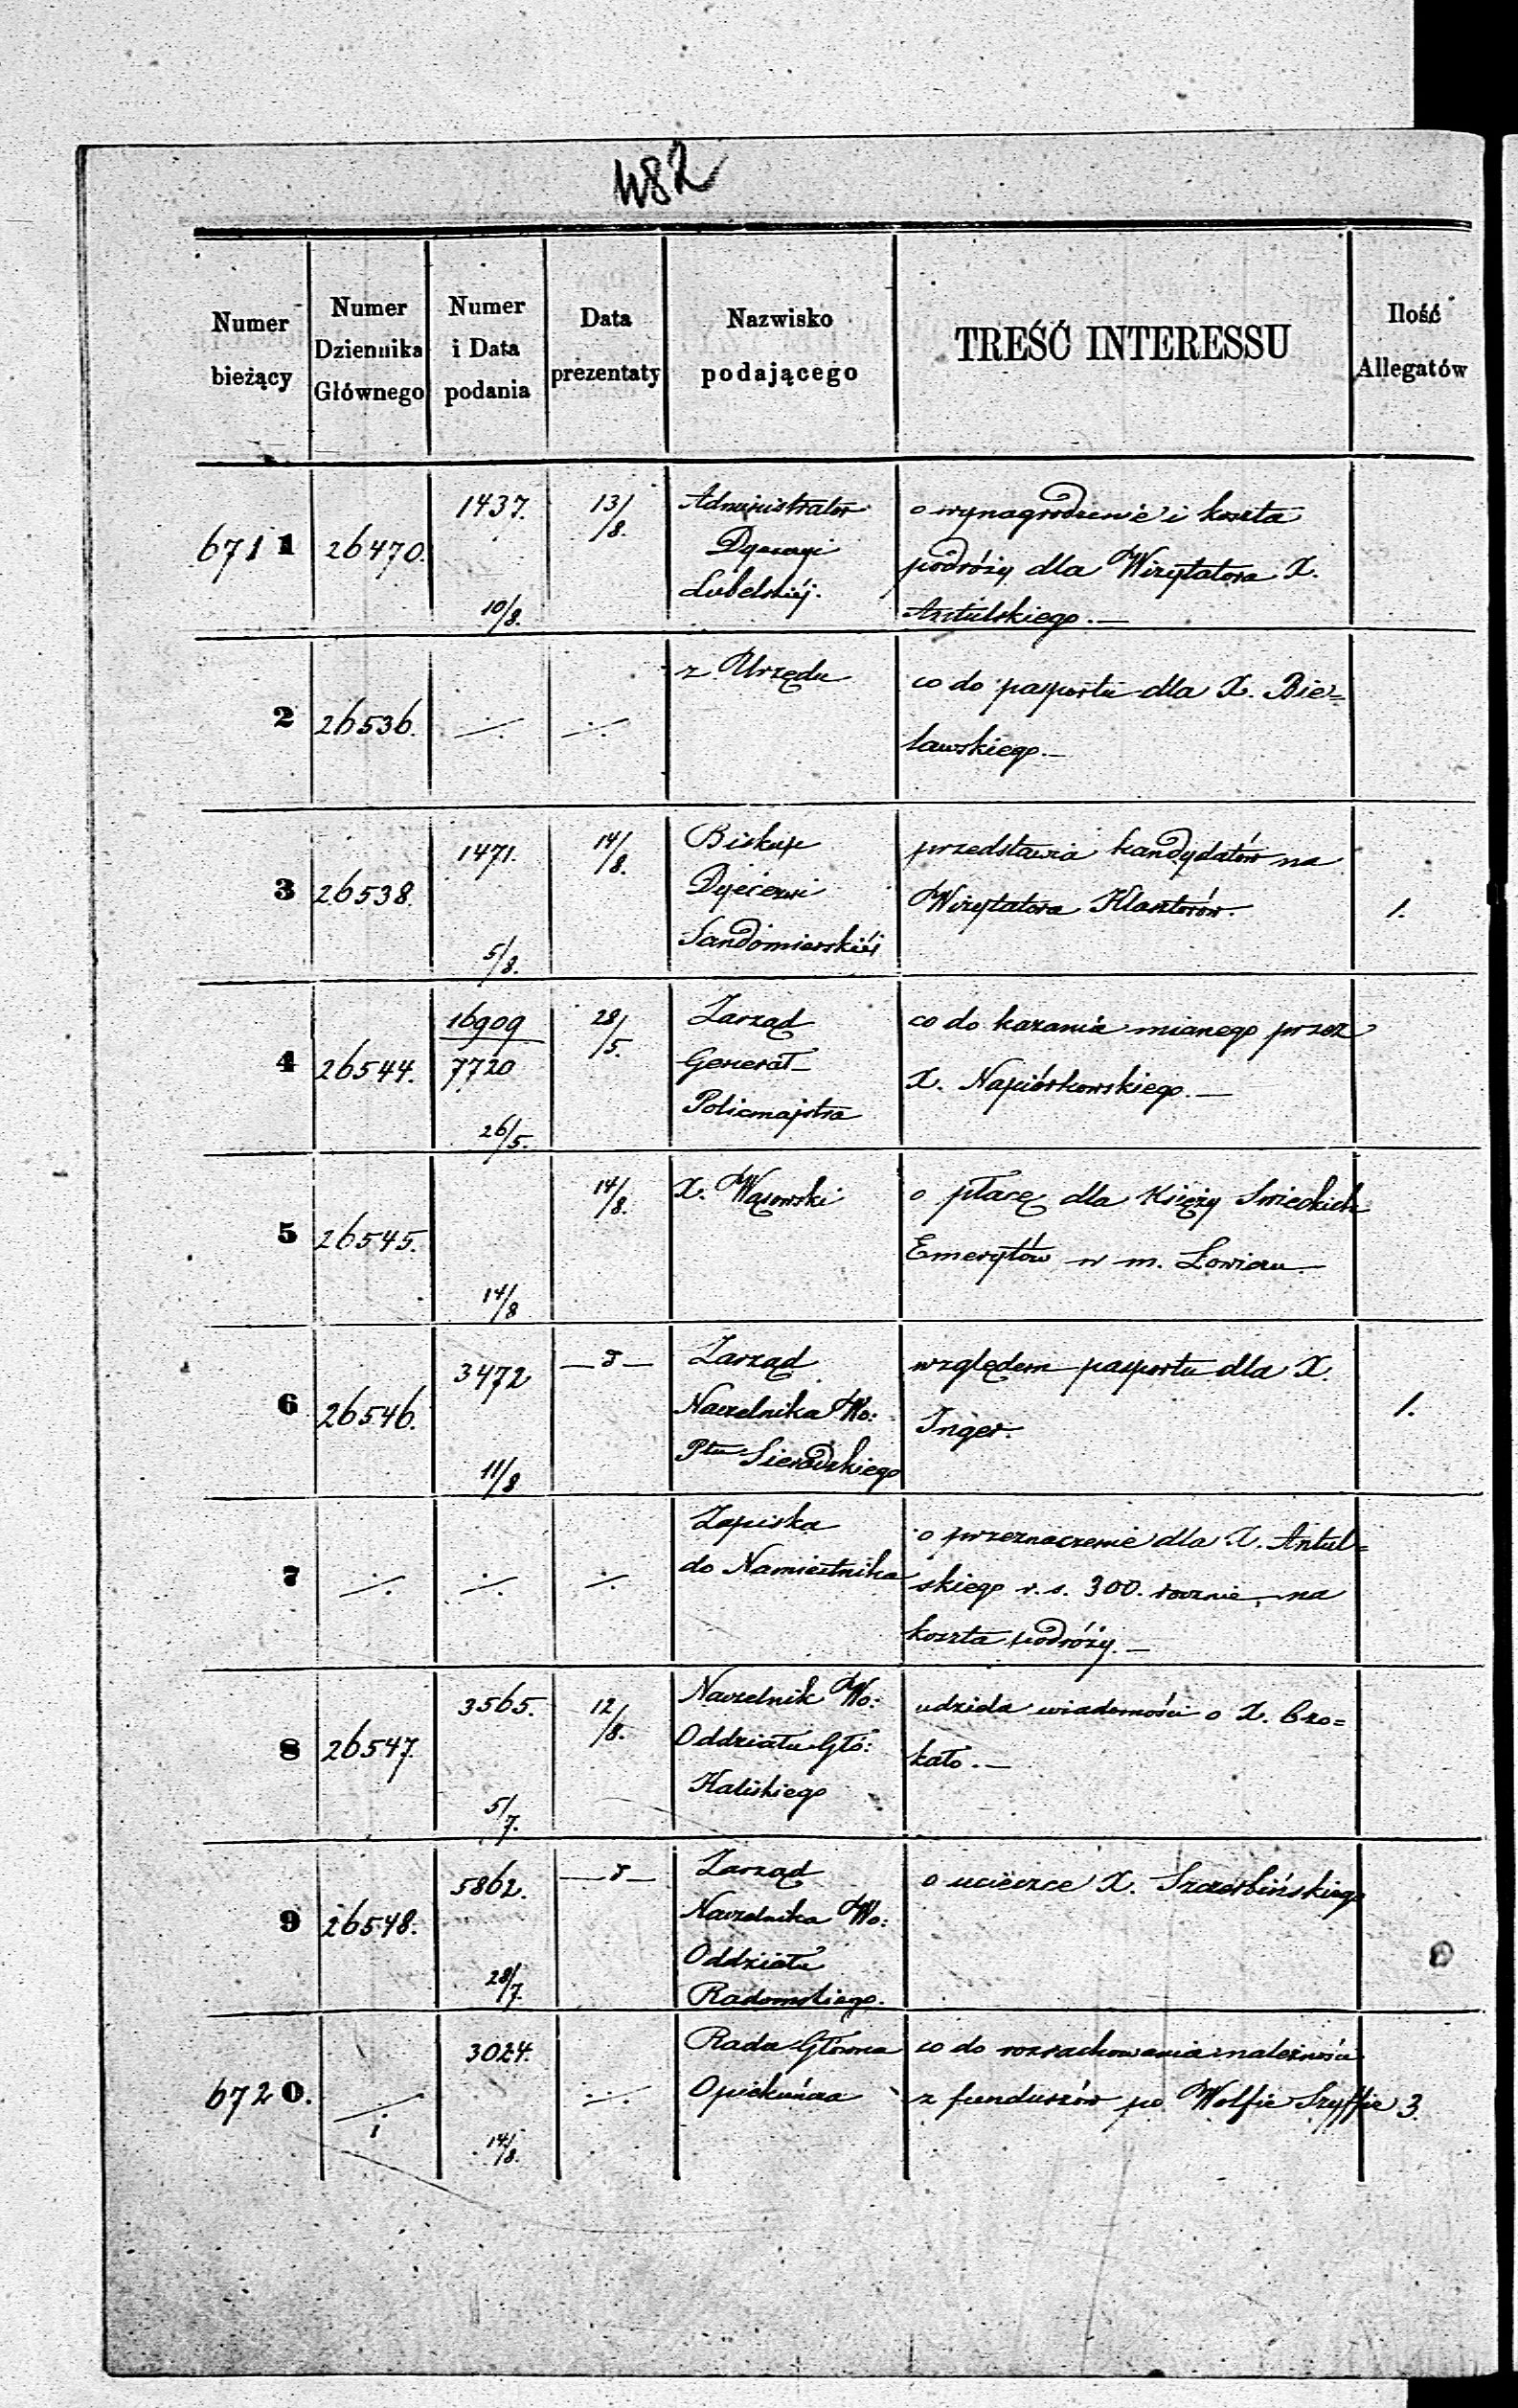 482
Numer bieżący
Numer Dziennika Głównego
Numer i Data podania
Data prezentaty
Nazwisko podającego
TREŚĆ INTERESSU
Ilość Allegatów
6711
26470.
1437.
10/8.
13/8.
Administrator
Dyecezyi
Lubelskiéj.
o wynagrodzenie i koszta
podróży dla Wizytatora X.
Antulskiego.—
2
26536.
·/.
·/.
z Urzędu
co do pasportu dla X. Bie=
ławskiego.—
3
26538.
1471.
5/8.
14/8.
Biskup
Dyecezyi
Sandomierskiéj
przedstawia kandydatów na
Wizytatora Klasztorów.
1.
4
26544.
16909
7720
26/5.
28/5.
Zarząd
Generał-
Policmajstra
co do kazania mianego przez
X. Napiórkowskiego.—
5
26545.
14/8
14/8.
X. Wąsowski
o płacę dla Księży Swieckich
Emerytów w m. Łowiczu.—
6
26546.
3472
11/8
—d—
Zarząd
Naczelnika Wo:
Ptu Sieradzkiego
względem pasportu dla X.
Inger.
1.
7
·/.
·/.
·/.
Zapiska
do Namiestnika
o przeznaczenie dla X. Antul=
skiego r. s. 300. rocznie, na
koszta podróży.—
8
26547.
3565.
5/7.
12/8.
Naczelnik Wo:
Oddziału Głó:
Kaliskiego
udziela wiadomości o X. Bro=
kato.—
9
26548.
5862.
28/7.
—d—
Zarząd
Naczelnika Wo:
Oddziału
Radomskiego.
o ucieczce X. Szczerbińskiego
6720.
·/.
3024.
14/8.
·/.
Rada Główna
Opiekuńcza
co do rozrachowania należności
z funduszów po Wolfie Szyffie
3.